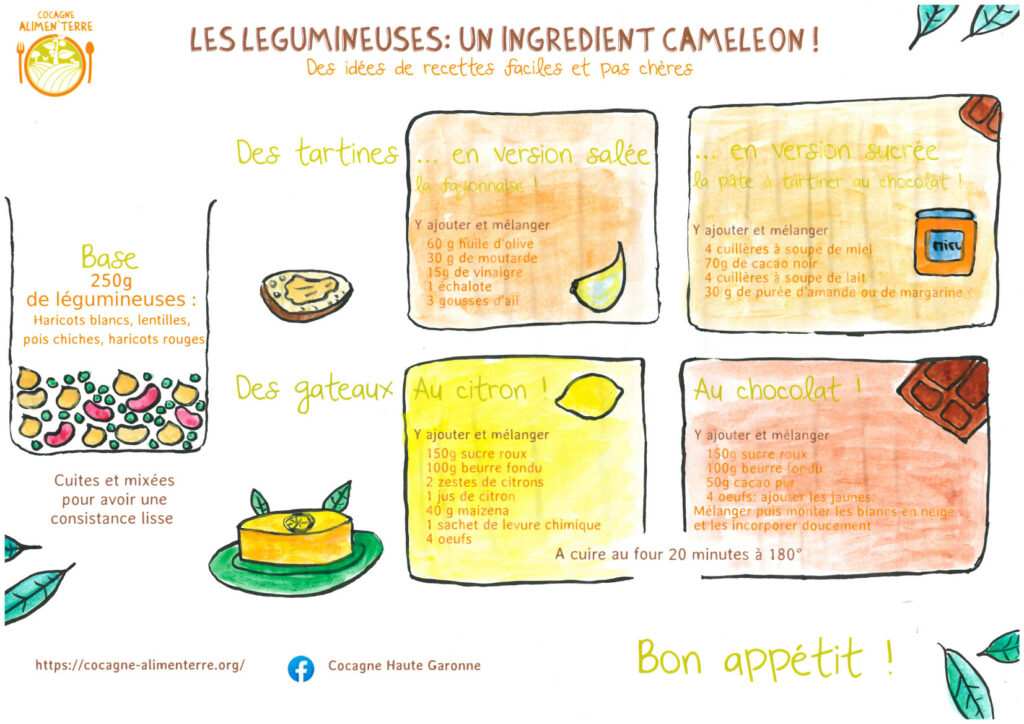 COCAGNE
ALIMEN'TERRE
LES LEGUMINEUSES: UN INGREDIENT CAMELEON !
Des idées de recettes faciles et pas chères
Base
250g
de légumineuses :
Haricots blancs, lentilles,
pois chiches, haricots rouges
Cuites et mixées
pour avoir une
consistance lisse
Des tartines
... en version salée
la fayonnaise !
Y ajouter et mélanger
60 g huile d'olive
30 g de moutarde
15g de vinaigre
1 échalote
3 gousses d'ail
... en version sucrée
la pâte à tartiner au chocolat !
Y ajouter et mélanger
4 cuillères à soupe de miel
70g de cacao noir
4 cuillères à soupe de lait
30 g de purée d'amande ou de margarine
MIEL
Des gateaux
Au citron !
Y ajouter et mélanger
150g sucre roux
100g beurre fondu
2 zestes de citrons
1 jus de citron
40 g maizena
1 sachet de levure chimique
4 oeufs
Au chocolat !
Y ajouter et mélanger
150g sucre roux
100g beurre fondu
50g cacao pur
4 oeufs: ajouter les jaunes.
Mélanger puis monter les blancs en neige
et les incorporer doucement
A cuire au four 20 minutes à 180°
https://cocagne-alimenterre.org/
Cocagne Haute Garonne
Bon appétit !